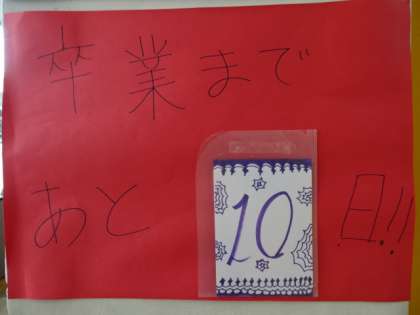 卒業まで
あと 10 日!!